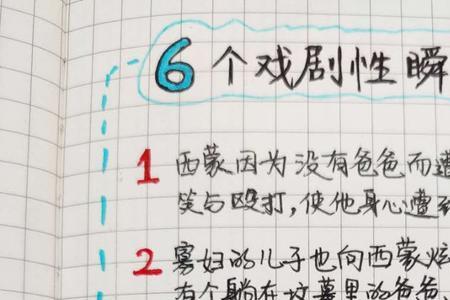 6个戏剧性瞬
1 西蒙因为没有爸爸而遭
笑与殴打,使他身心遭到
2 寡妇的儿子也向西蒙炫
有个躺在坟墓里的爸爸